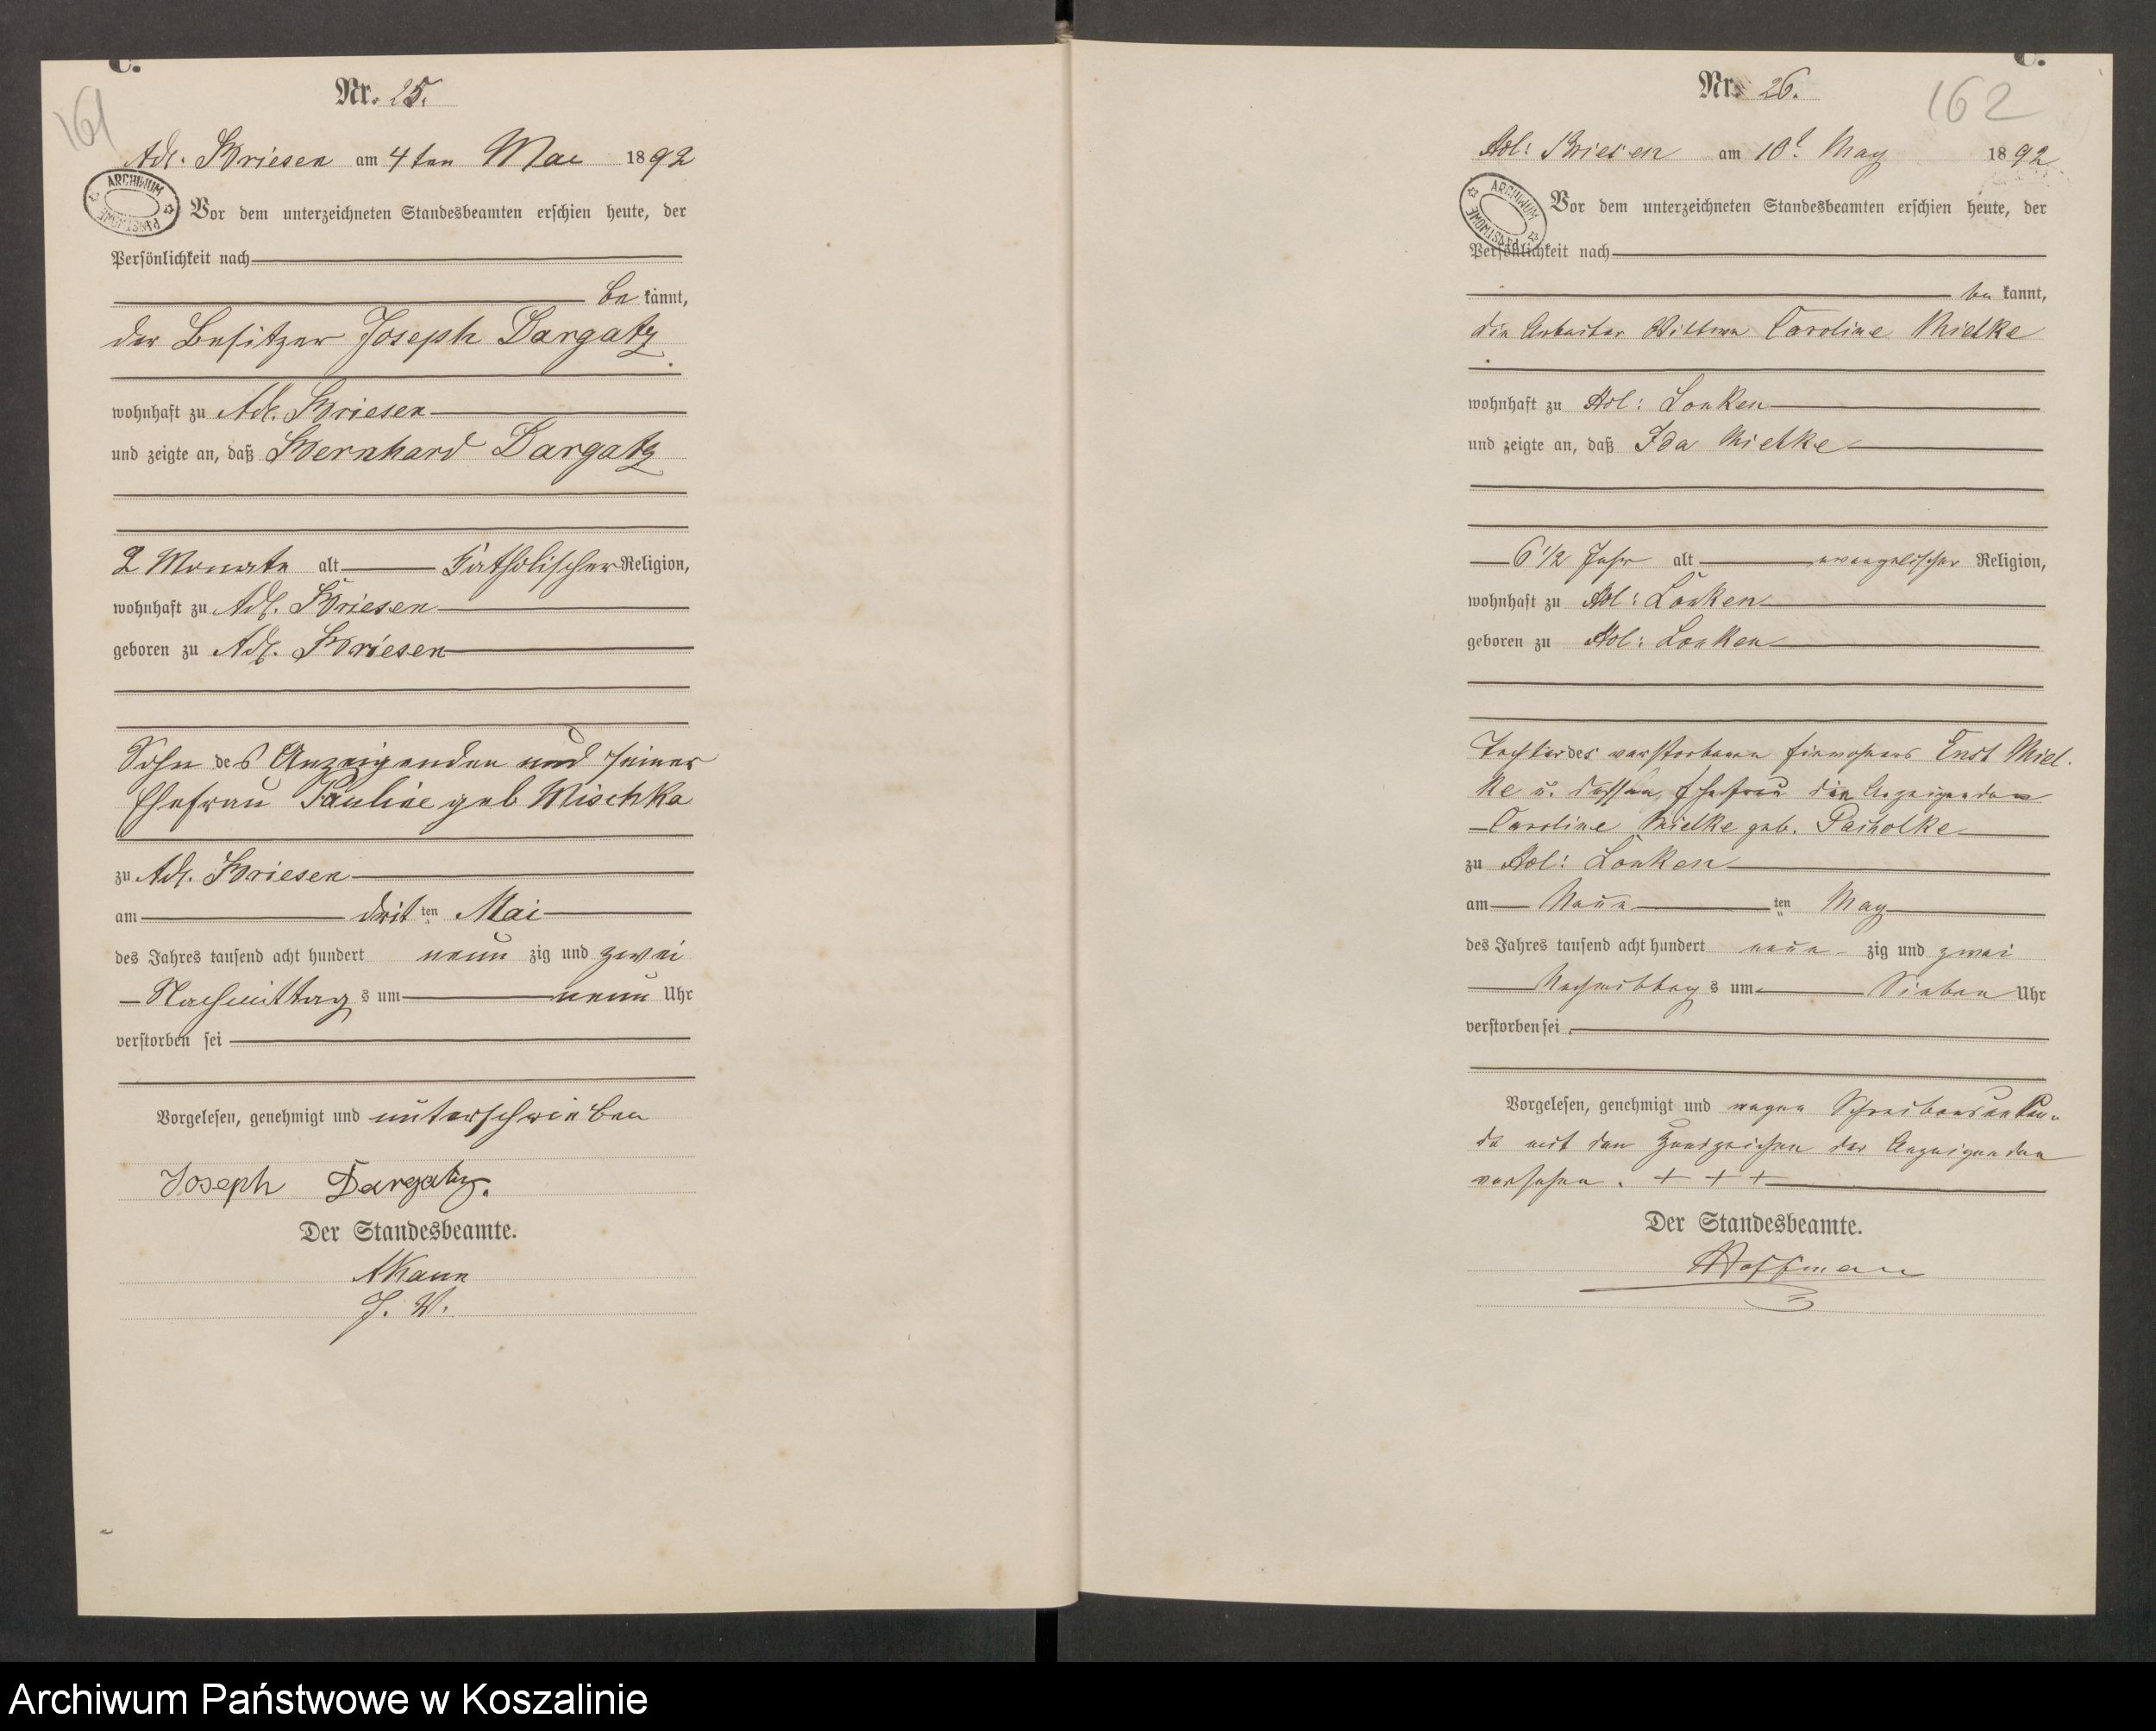 C.
161
Nr. 25.
Adl. Briesen am 4ten Mai 1892
ARCHIWUM PAŃSTWOWE
Vor dem unterzeichneten Standesbeamten erschien heute, der
Persönlichkeit nach
be kannt,
der Besitzer Joseph Dargatz
wohnhaft zu Adl. Briesen
und zeigte an, daß Bernhard Dargatz
2 Monate alt katholischer Religion,
wohnhaft zu Adl. Briesen
geboren zu Adl. Briesen
Sohn des Anzeigenden und seiner
Ehefrau Pauline geb Mischka
zu Adl. Briesen
am drit ten Mai
des Jahres tausend acht hundert neun zig und zwei
Nachmittags um neun Uhr
verstorben sei
Vorgelesen, genehmigt und unterschrieben
Joseph Dargatz.
Der Standesbeamte.
J. V.
C.
162
Nr. 26.
Adl: Briesen am 10t May 1892
ARCHIWUM PAŃSTWOWE
Vor dem unterzeichneten Standesbeamten erschien heute, der
Persönlichkeit nach
be kannt,
die Arbeiter Wittwe Caroline Mielke
wohnhaft zu Adl: Lonken
und zeigte an, daß Ida Mielke
6 1/2 Jahr alt evangelischer Religion,
wohnhaft zu Adl: Lonken
geboren zu Adl: Lonken
Tochter des verstorbenen Einwohners Ernst Miel-
ke u. dessen Ehefrau die Anzeigenden
Caroline Mielke geb. Pacholke
zu Adl: Lonken
am Neun ten May
des Jahres tausend acht hundert neun zig und zwei
Nachmittags um Sieben Uhr
verstorben sei
Vorgelesen, genehmigt und wegen Schreibensunkun-
de mit den Handzeichen der Anzeigenden
versehen. + + +
Der Standesbeamte.
Hoffman
Archiwum Państwowe w Koszalinie